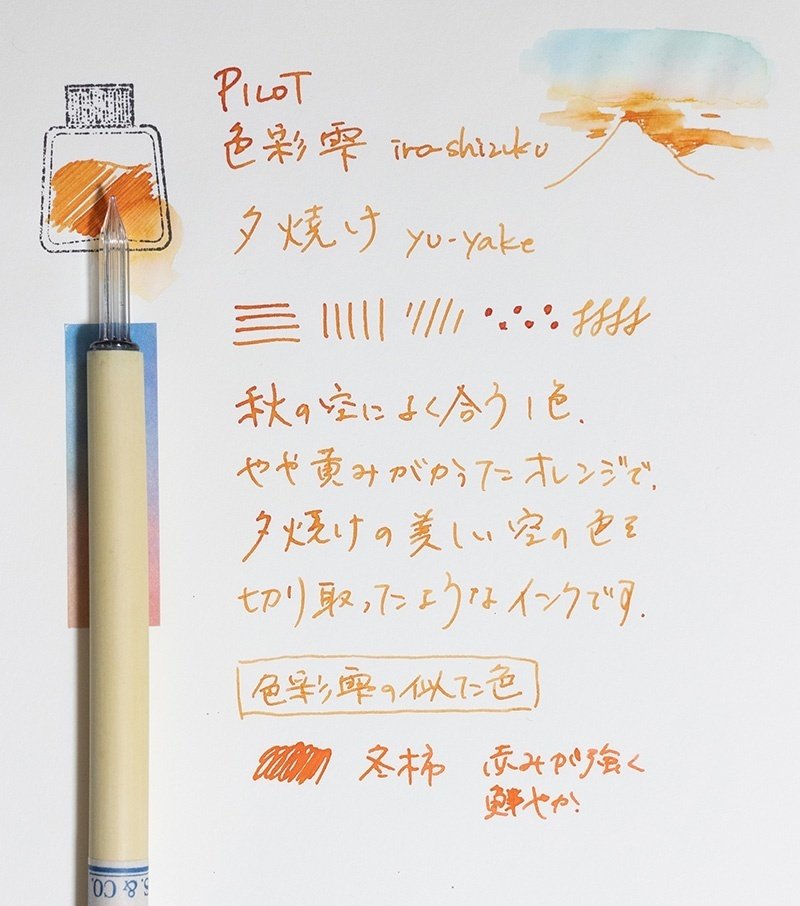 PILOT
色彩雫 iro-shizuku
夕焼け yu-yake
秋の空によく合う1色.
やや黄みがかったオレンジで.
夕焼けの美しい空の色を
切り取ったようなインクです.
色彩雫の似た色
冬柿 赤みが強く
鮮やか.
S. & CO.